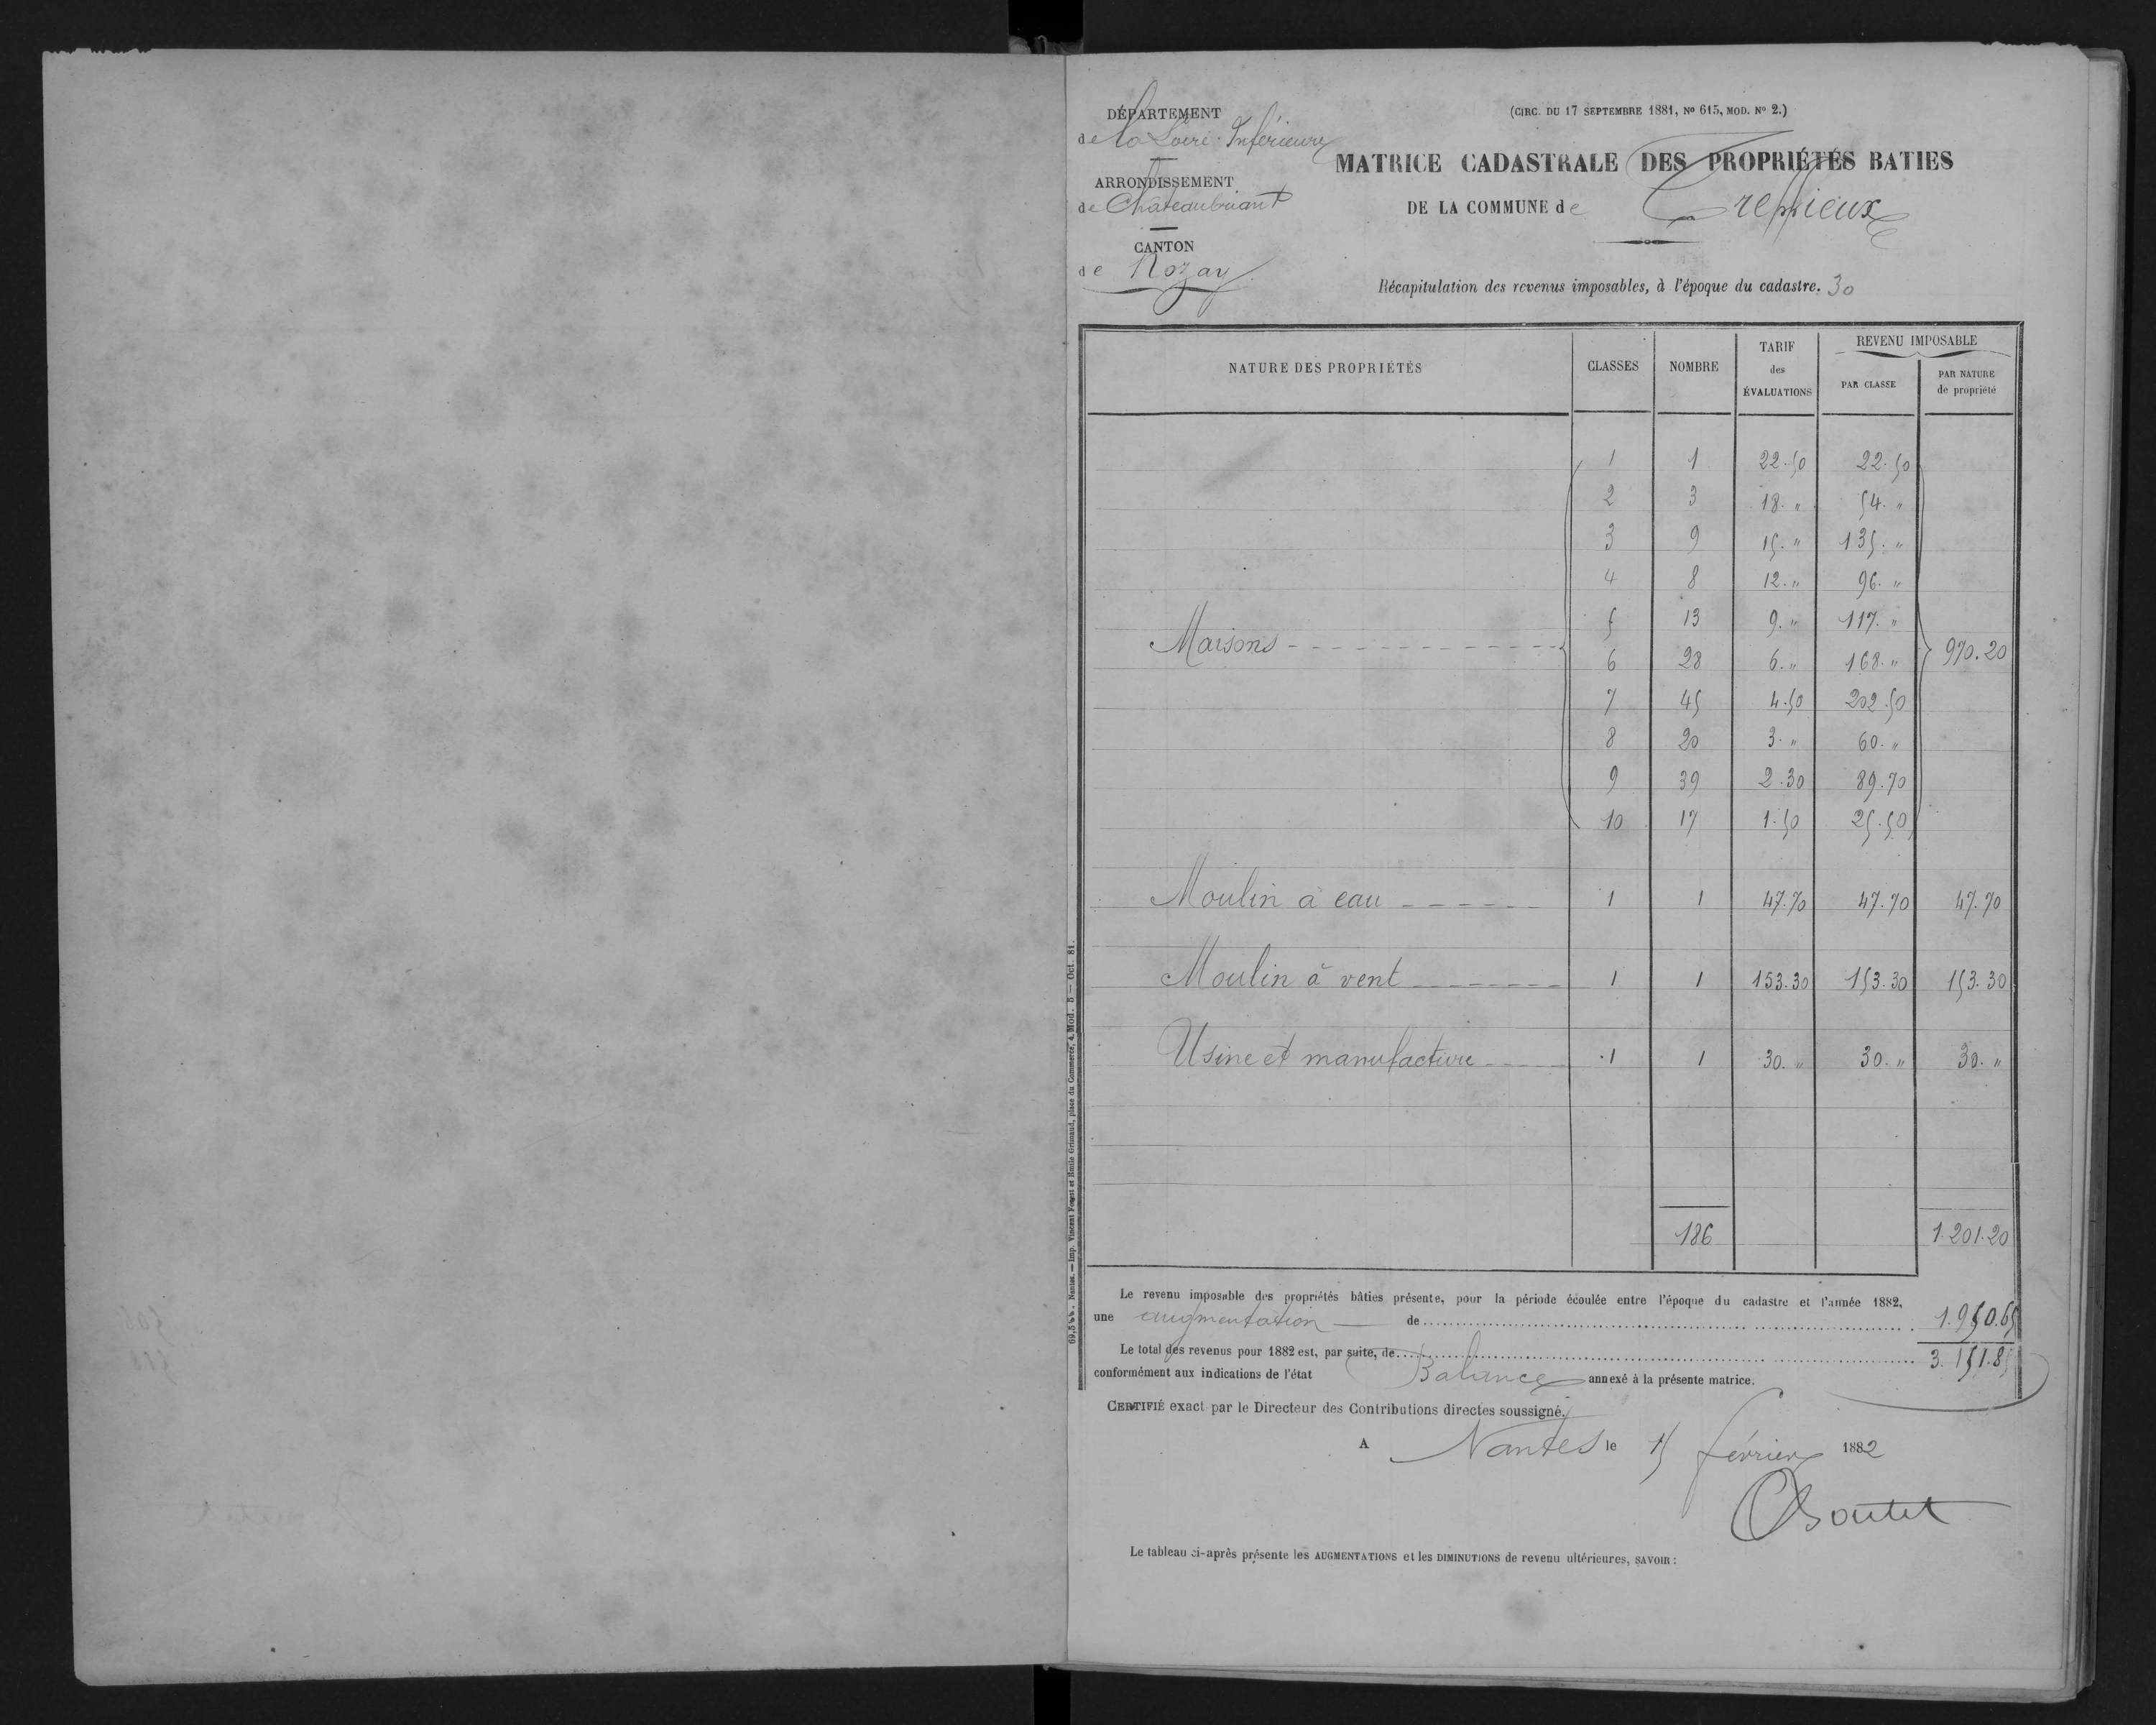 DÉPARTEMENT
de la Loire-Inférieure
ARRONDISSEMENT
de Châteaubriant
CANTON
de Nozay
(CIRC. DU 17 SEPTEMBRE 1881, Nº 615, MOD. Nº 2.)
MATRICE CADASTRALE DES PROPRIÉTÉS BATIES
DE LA COMMUNE de Treffieux
Récapitulation des revenus imposables, à l'époque du cadastre. 30
NATURE DES PROPRIÉTÉS CLASSES NOMBRE TARIF des ÉVALUATIONS REVENU IMPOSABLE PAR CLASSE PAR NATURE de propriété
1 1 22.50 22.50
2 3 18. " 54. "
3 9 15. " 135. "
4 8 12. " 96. "
5 13 9. " 117. "
Maisons 970.20
6 28 6. " 168. "
7 45 4.50 202.50
8 20 3. " 60. "
9 39 2.30 89.70
10 17 1.50 25.50
Moulin à eau 1 1 47.70 47.70 47.70
Moulin à vent 1 1 153.30 153.30 153.30
Usine et manufacture 1 1 30. " 30. " 30. "
186 1.201.20
Le revenu imposable des propriétés bâties présente, pour la période écoulée entre l'époque du cadastre et l'année 1882,
une augmentation de 1.950.65
Le total des revenus pour 1882 est, par suite, de 3.151.85
conformément aux indications de l'état Balance annexé à la présente matrice.
CERTIFIÉ exact par le Directeur des Contributions directes soussigné.
A Nantes le 15 février 1882
Le tableau ci-après présente les AUGMENTATIONS et les DIMINUTIONS de revenu ultérieures, SAVOIR :
69,5 bis. Nantes. — Imp. Vincent Forest et Emile Grimaud, place du Commerce, 4. Mod. 5 — Oct. 81.